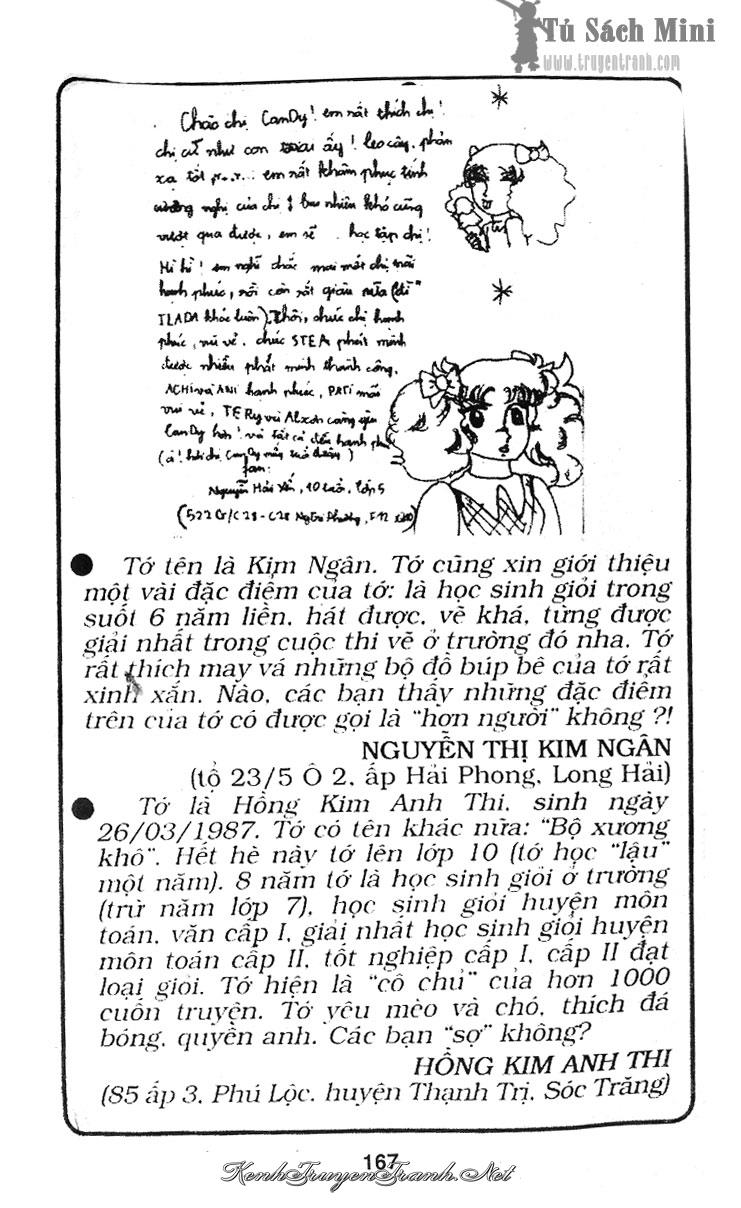 Tủ Sách Mini
www.truyentranh.com
Chào chị CanDy! em rất thích chị!
chị cứ như con trai ấy! leo cây, phản
xạ tốt em rất khâm phục tính
cương nghị của chị! bao nhiêu khó cũng
vượt qua được, em sẽ học tập chị!
Hì hì! em nghĩ chắc mai mốt chị
hạnh phúc, rồi còn rất giàu nữa
khác luôn). Thôi, chúc chị hạnh
phúc, vui vẻ. chúc STEA phát minh
được nhiều phát minh thành công,
ACHI và ANI hạnh phúc, PATI mãi
vui vẻ, TERy và càng yêu
CanDy hơn! và tất cả đều hạnh
fan:
Nguyễn Hải Yến, 10 tuổi, lớp 5
● Tớ tên là Kim Ngân. Tớ cũng xin giới thiệu
một vài đặc điểm của tớ: là học sinh giỏi trong
suốt 6 năm liền, hát được, vẽ khá, từng được
giải nhất trong cuộc thi vẽ ở trường đó nha. Tớ
rất thích may vá những bộ đồ búp bê của tớ rất
xinh xắn. Nào, các bạn thấy những đặc điểm
trên của tớ có được gọi là "hơn người" không ?!
NGUYỄN THỊ KIM NGÂN
(tổ 23/5 Ô 2, ấp Hải Phong, Long Hải)
● Tớ là Hồng Kim Anh Thi, sinh ngày
26/03/1987. Tớ có tên khác nữa: "Bộ xương
khô". Hết hè này tớ lên lớp 10 (tớ học "lậu"
một năm). 8 năm tớ là học sinh giỏi ở trường
(trừ năm lớp 7), học sinh giỏi huyện môn
toán, văn cấp I, giải nhất học sinh giỏi huyện
môn toán cấp II, tốt nghiệp cấp I, cấp II đạt
loại giỏi. Tớ hiện là "cô chủ" của hơn 1000
cuốn truyện. Tớ yêu mèo và chó, thích đá
bóng, quyền anh. Các bạn "sợ" không?
HỒNG KIM ANH THI
(85 ấp 3, Phú Lộc, huyện Thạnh Trị, Sóc Trăng)
167
KenhTruyenTranh.Net